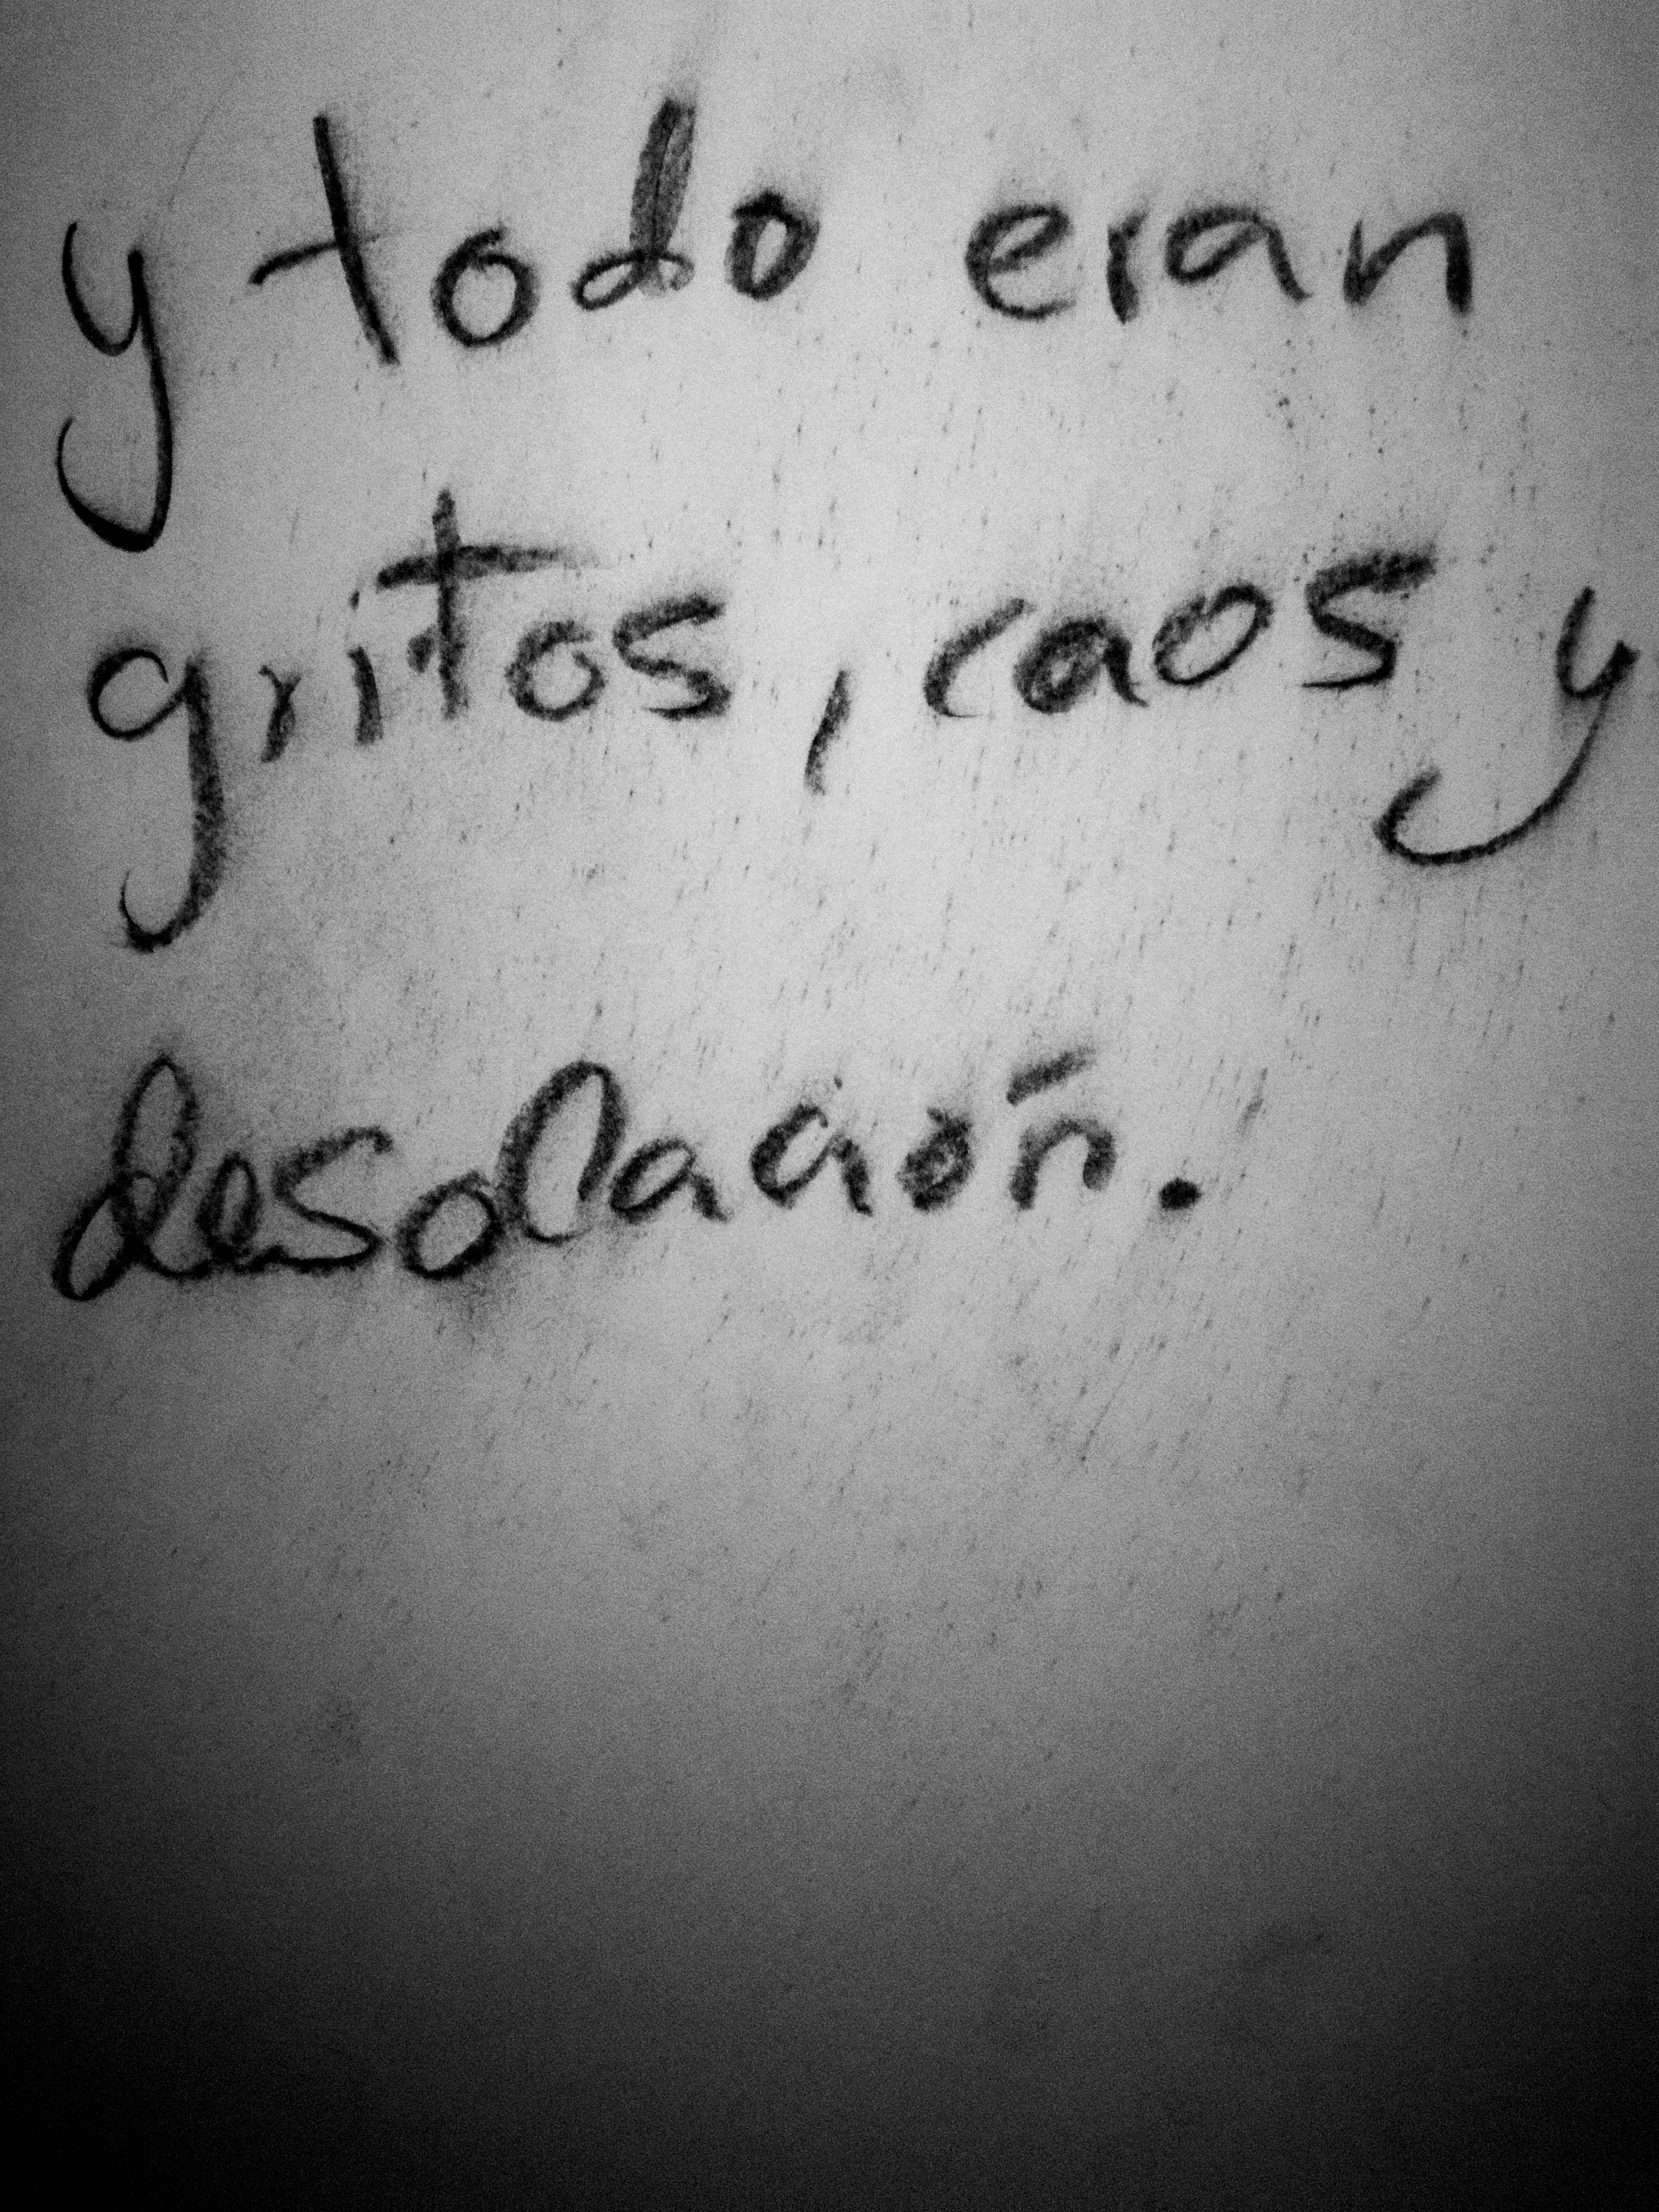 y todo eran
gritos, caos y
desolación.